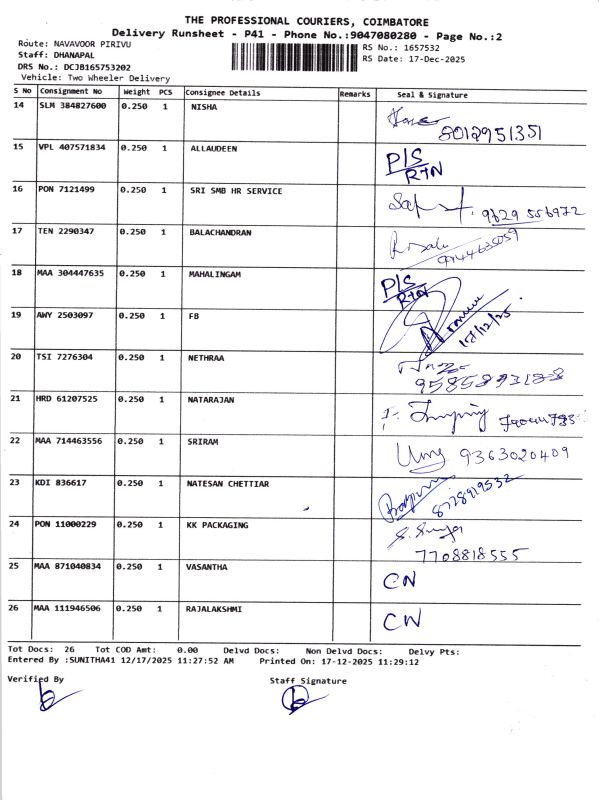 THE PROFESSIONAL COURIERS, COIMBATORE
Delivery Runsheet - P41 - Phone No.:9047080280 - Page No.:2
Route: NAVAVOOR PIRIVU
RS No.: 1657532
Staff: DHANAPAL
RS Date: 17-Dec-2025
DRS No.: DCJB165753202
Vehicle: Two Wheeler Delivery
S No Consignment No Weight PCS Consignee Details Remarks Seal & Signature
14 SLM 384827600 0.250 1 NISHA
8012951351
15 VPL 407571834 0.250 1 ALLAUDEEN P/S
RTN
16 PON 7121499 0.250 1 SRI SMB HR SERVICE
9629 556972
17 TEN 2290347 0.250 1 BALACHANDRAN
9944635059
18 MAA 304447635 0.250 1 MAHALINGAM P/S
RTN
19 AWY 2503097 0.250 1 FB
17/12/25
20 TSI 7276304 0.250 1 NETHRAA
21 HRD 61207525 0.250 1 NATARAJAN
22 MAA 714463556 0.250 1 SRIRAM 9363020409
23 KDI 836617 0.250 1 NATESAN CHETTIAR
8728919532
24 PON 11000229 0.250 1 KK PACKAGING
7708818555
25 MAA 871040834 0.250 1 VASANTHA CN
26 MAA 111946506 0.250 1 RAJALAKSHMI CN
Tot Docs: 26 Tot COD Amt: 0.00 Delvd Docs: Non Delvd Docs: Delvy Pts:
Entered By :SUNITHA41 12/17/2025 11:27:52 AM Printed On: 17-12-2025 11:29:12
Verified By Staff Signature